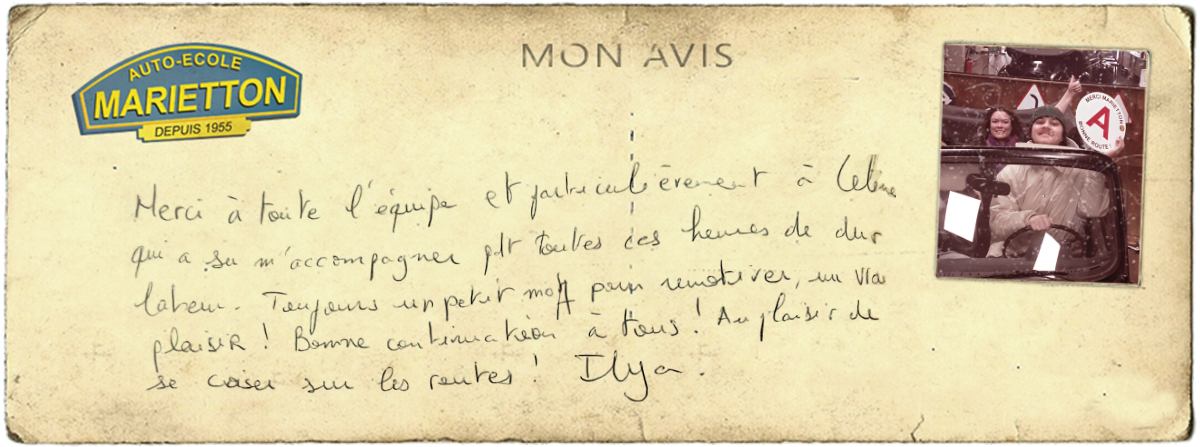 AUTO-ECOLE
MARIETTON
DEPUIS 1955
MON AVIS
MERCI MARIETTON
A
BONNE ROUTE !
Merci à toute l'équipe et particulièrement à Céline
qui a su m'accompagner pdt toutes ces heures de dur
labeur. Toujours un petit mot pour remotiver, un vrai
plaisir ! Bonne continuation à tous ! Au plaisir de
se croiser sur les routes ! Ilya.